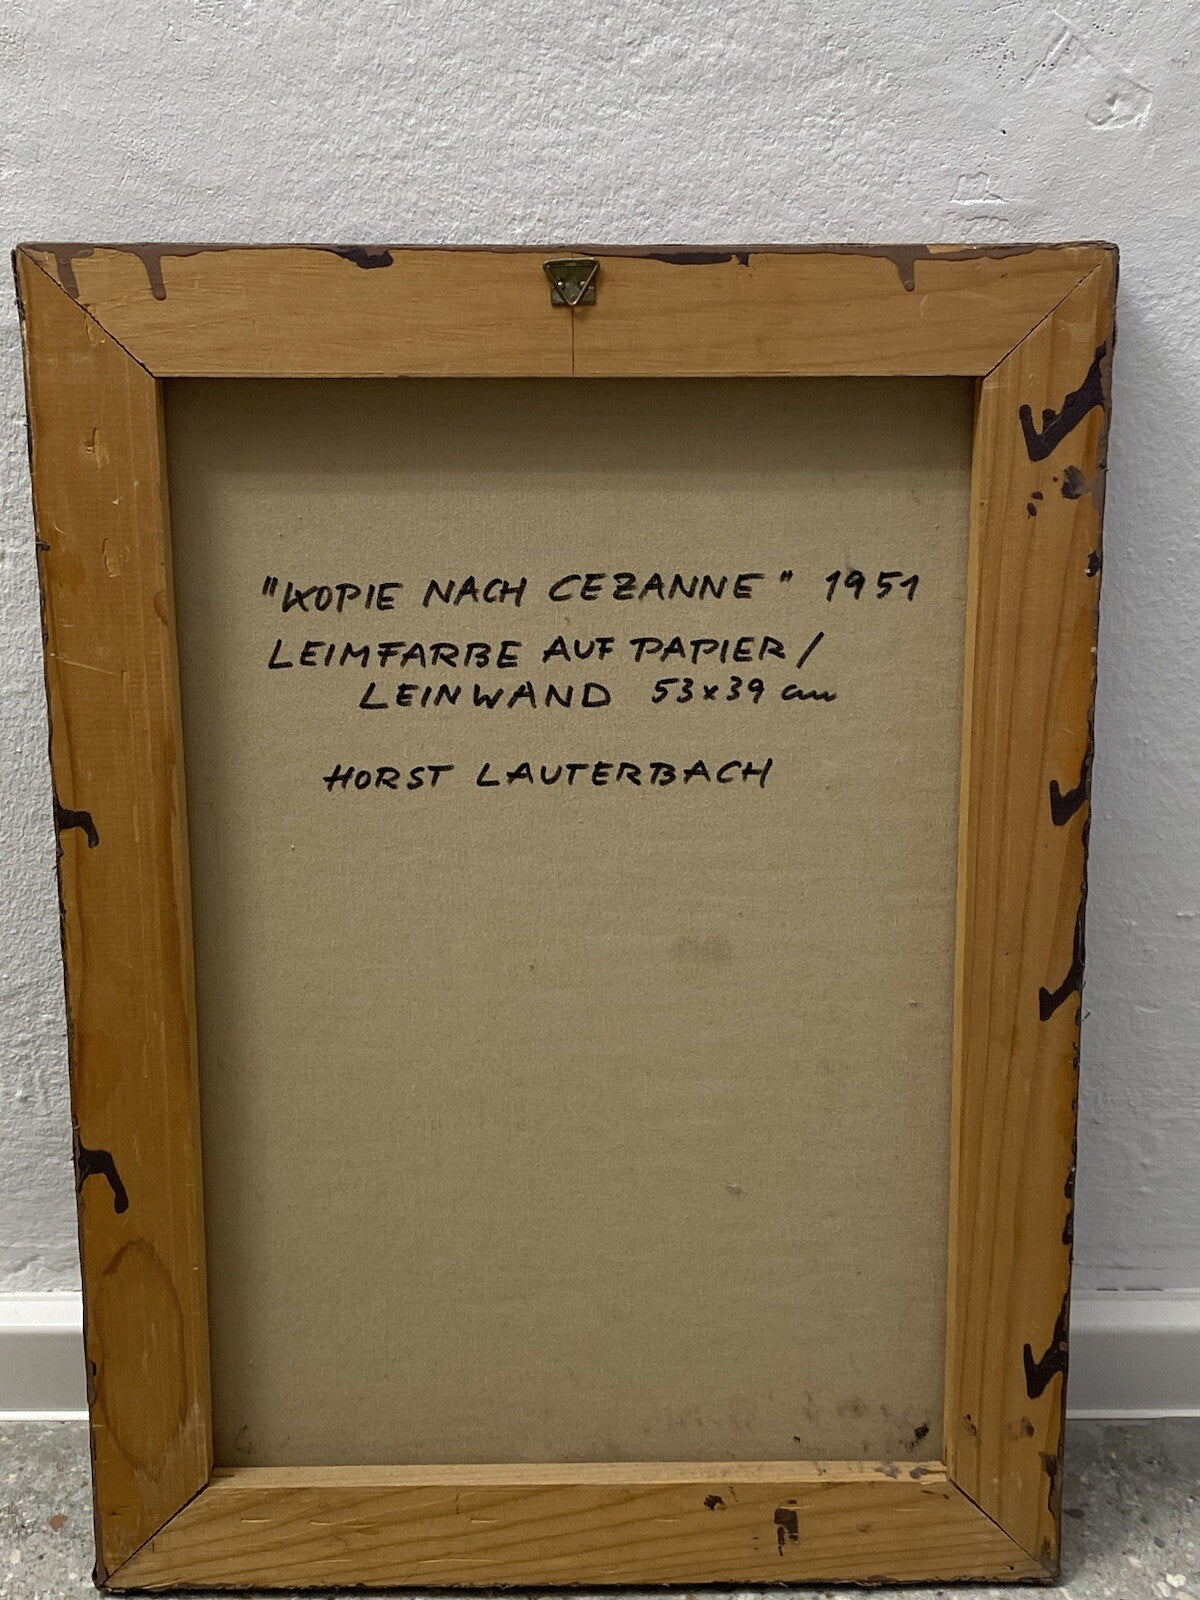 "KOPIE NACH CEZANNE" 1951
LEIMFARBE AUF PAPIER /
LEINWAND 53x39 cm
HORST LAUTERBACH